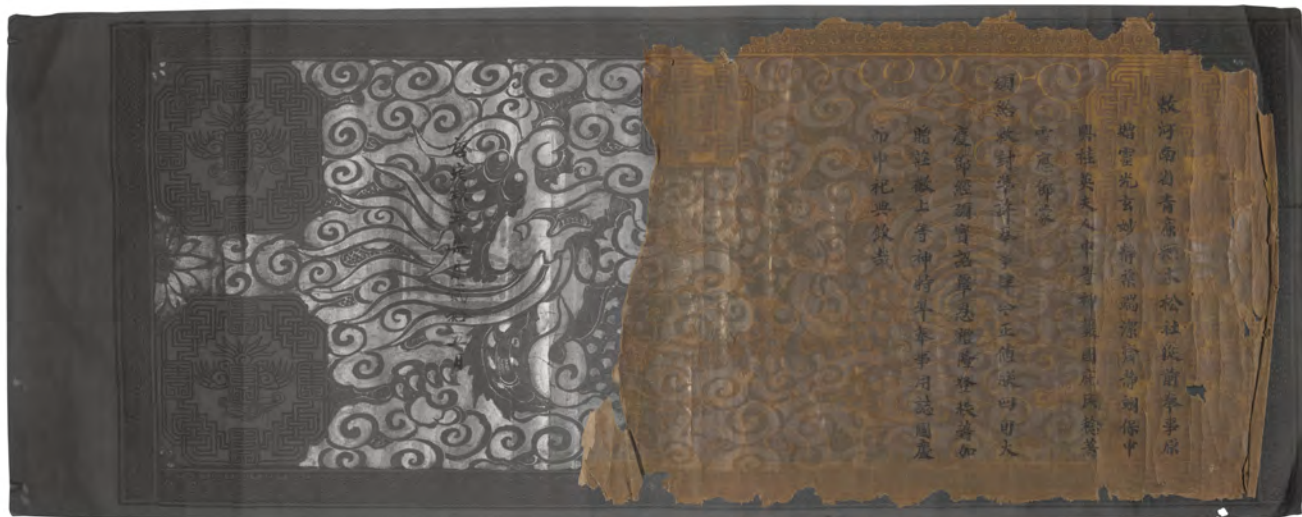 敕河南省青廉縣松社從前奉事原
贈靈光玄妙齊莊端潔貞靜翊保中
興桂英夫人中等神護國庇民稔著
靈應節蒙
頒給敕封準許奉事肆今正值朕四旬大
慶節經頒寶詔覃恩禮隆登秩著加
贈莊徽上等神特準奉事用誌國慶
而申祀典欽哉